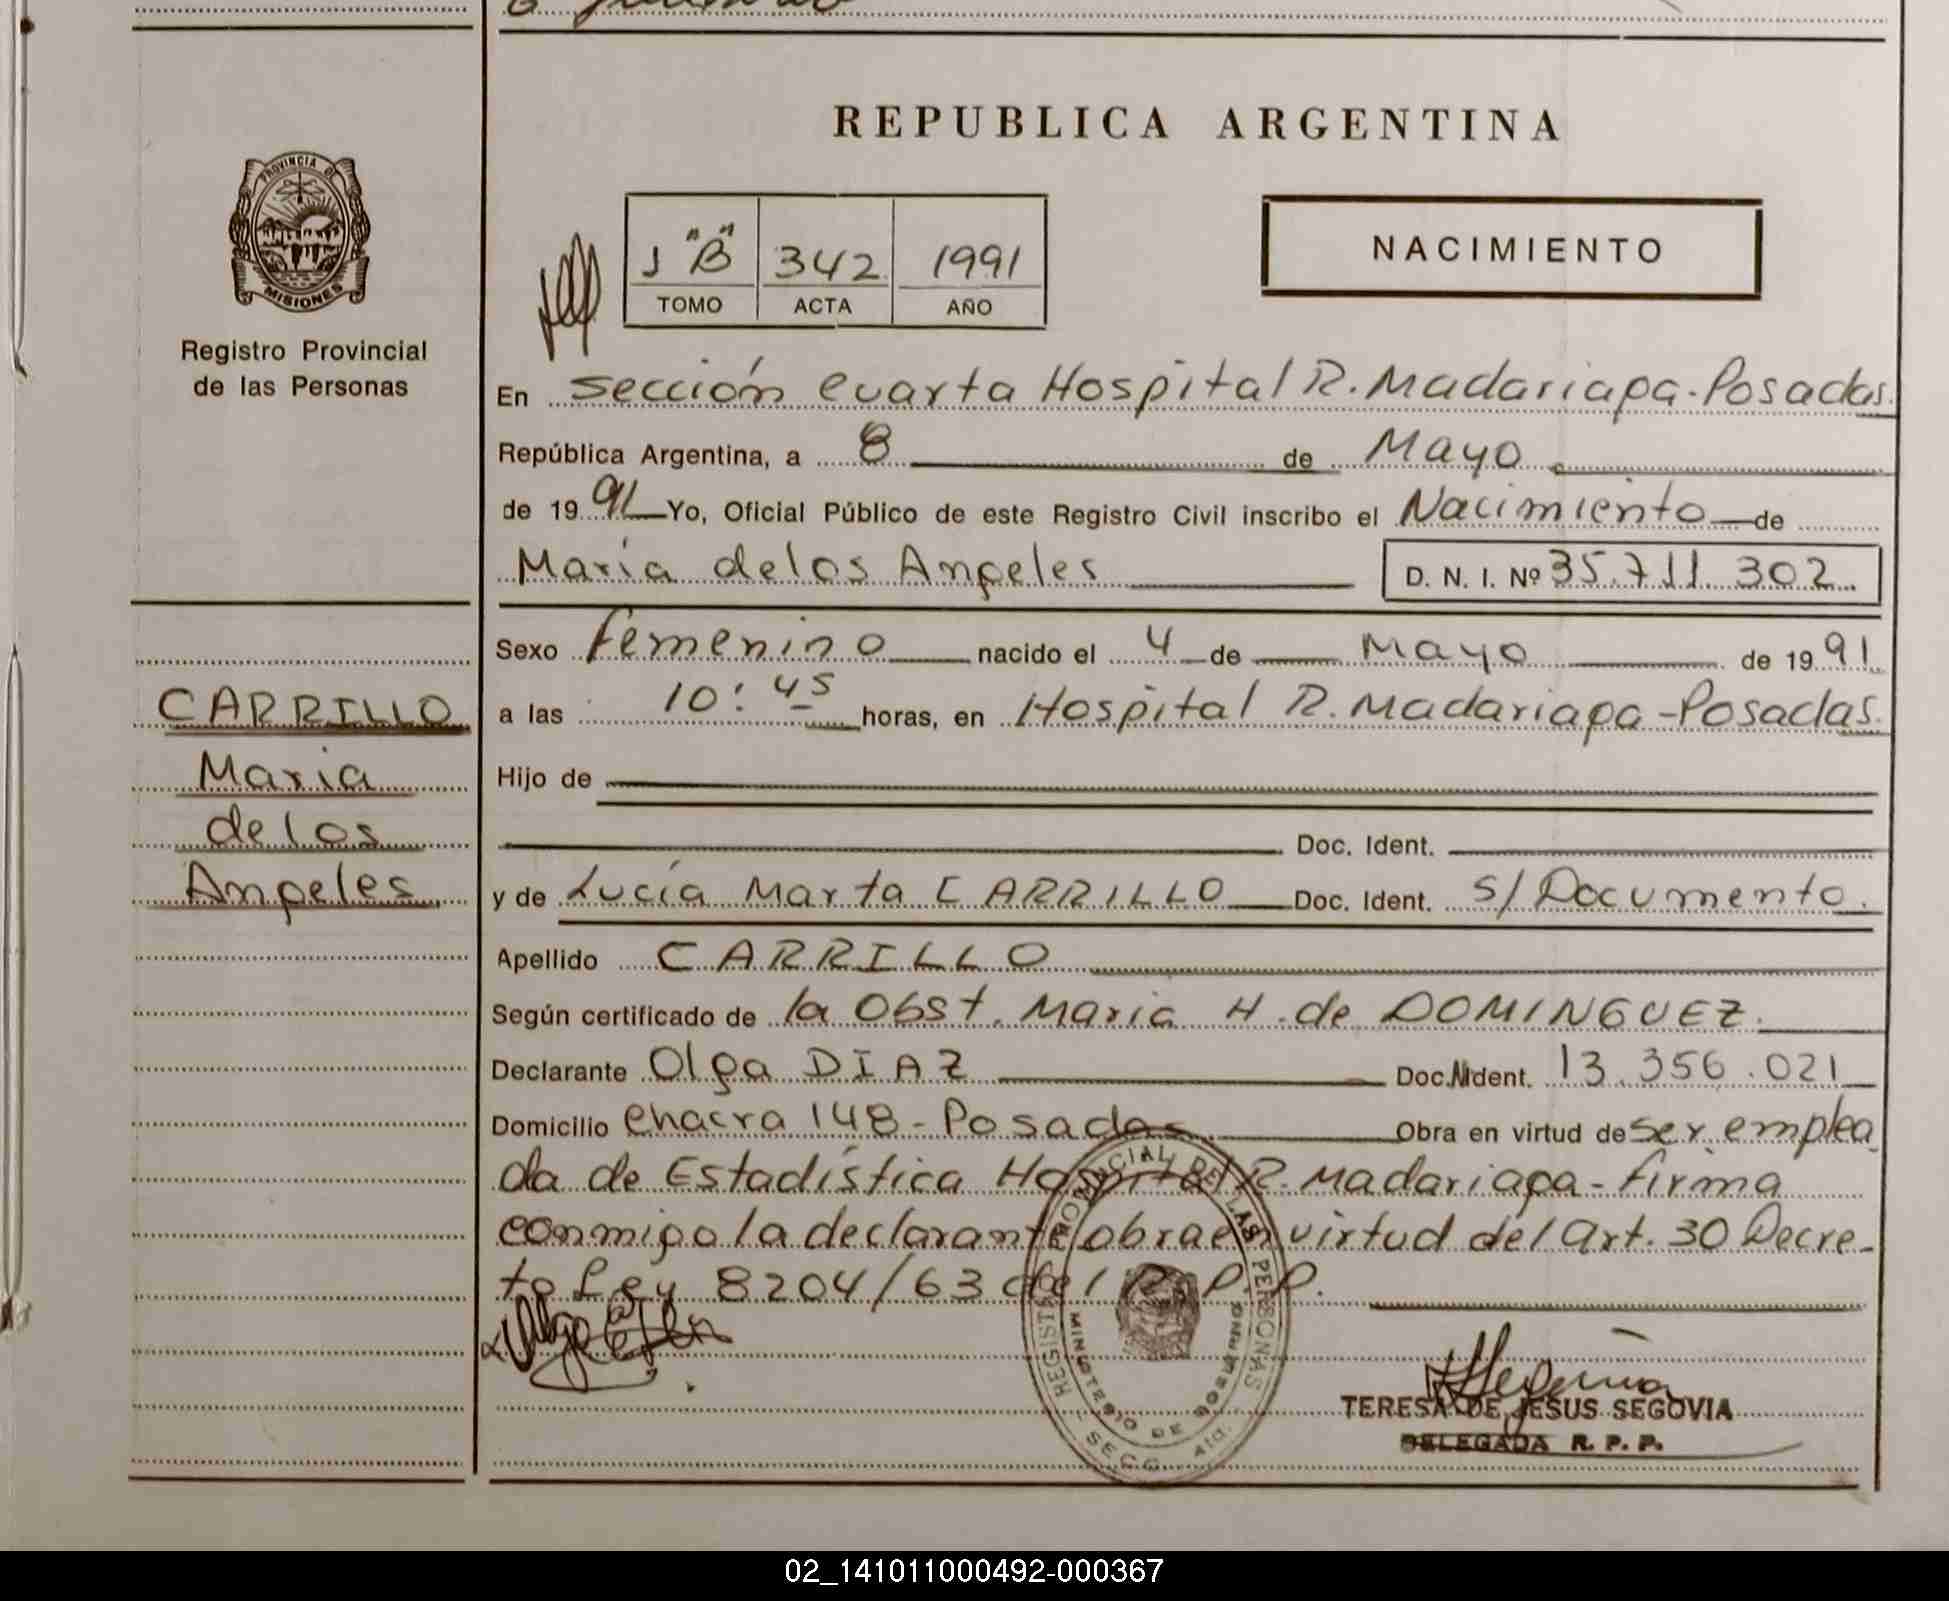 REPUBLICA ARGENTINA
PROVINCIA DE
MISIONES
Registro Provincial
de las Personas
J "B" 342 1991
TOMO ACTA AÑO
NACIMIENTO
En Sección Cuarta Hospital R. Madariaga - Posadas.
República Argentina, a 8 de Mayo
de 1991 Yo, Oficial Público de este Registro Civil inscribo el Nacimiento de
María de los Angeles D. N. I. Nº 35.711.302
Sexo femenino nacido el 4 de Mayo de 1991
a las 10:45 horas, en Hospital R. Madariaga - Posadas.
Hijo de
Doc. Ident.
y de Lucía Marta CARRILLO Doc. Ident. S/Documento.
Apellido CARRILLO
Según certificado de la Obst. Maria H. de DOMINGUEZ.
Declarante Olga DIAZ Doc. Ident. 13.356.021
Domicilio Chacra 148 - Posadas Obra en virtud de ser emplea
da de Estadística Hospital R. Madariaga - firma
conmigo la declarante obra en virtud del Art. 30 Decre-
to Ley 8204/63 del R.P.P.
CARRILLO
Maria
de los
Angeles
REGISTRO PROVINCIAL DE LAS PERSONAS
MINISTERIO DE GOBIERNO
SECC. 4ta.
TERESA DE JESUS SEGOVIA
DELEGADA R. P. P.
02_141011000492-000367